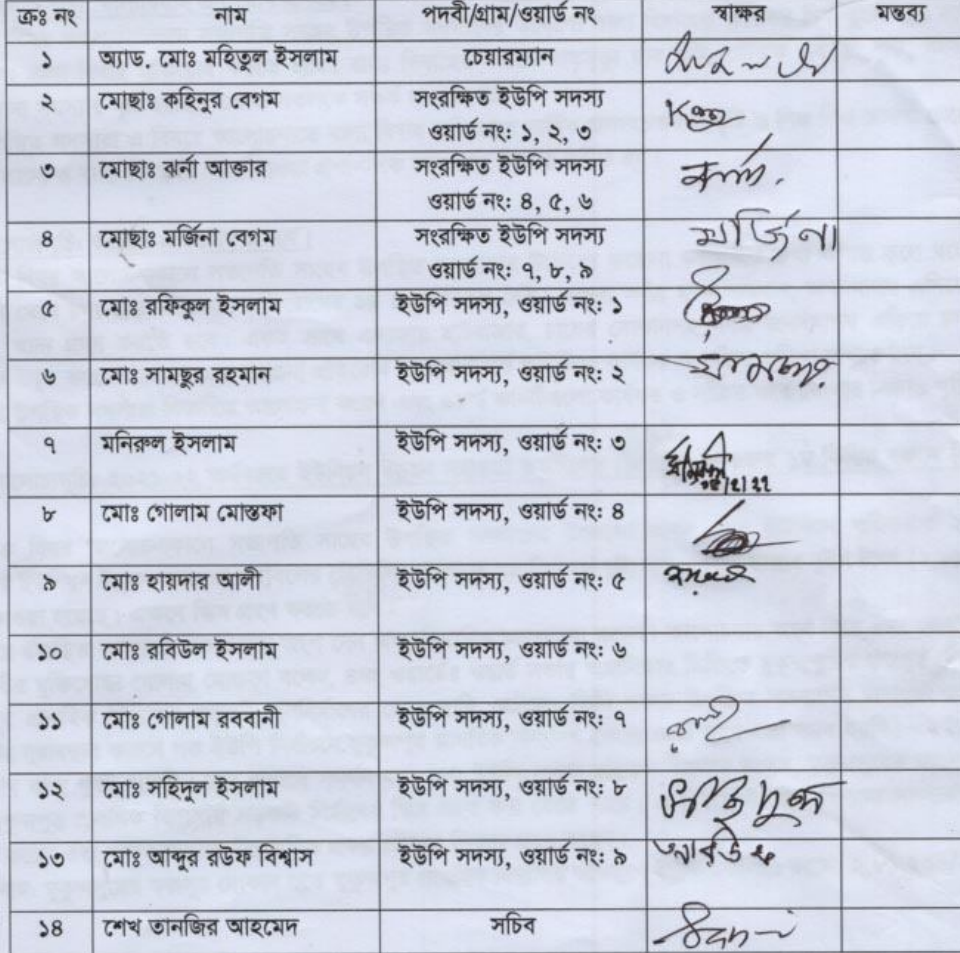 ক্রঃ নং নাম পদবী/গ্রাম/ওয়ার্ড নং স্বাক্ষর মন্তব্য
১ অ্যাড. মোঃ মহিতুল ইসলাম চেয়ারম্যান
২ মোছাঃ কহিনুর বেগম সংরক্ষিত ইউপি সদস্য
ওয়ার্ড নং: ১, ২, ৩
৩ মোছাঃ ঝর্না আক্তার সংরক্ষিত ইউপি সদস্য
ওয়ার্ড নং: ৪, ৫, ৬
৪ মোছাঃ মর্জিনা বেগম সংরক্ষিত ইউপি সদস্য মর্জিনা
ওয়ার্ড নং: ৭, ৮, ৯
৫ মোঃ রফিকুল ইসলাম ইউপি সদস্য, ওয়ার্ড নং: ১
৬ মোঃ সামছুর রহমান ইউপি সদস্য, ওয়ার্ড নং: ২
৭ মনিরুল ইসলাম ইউপি সদস্য, ওয়ার্ড নং: ৩
৮ মোঃ গোলাম মোস্তফা ইউপি সদস্য, ওয়ার্ড নং: ৪
৯ মোঃ হায়দার আলী ইউপি সদস্য, ওয়ার্ড নং: ৫
১০ মোঃ রবিউল ইসলাম ইউপি সদস্য, ওয়ার্ড নং: ৬
১১ মোঃ গোলাম রববানী ইউপি সদস্য, ওয়ার্ড নং: ৭
১২ মোঃ সহিদুল ইসলাম ইউপি সদস্য, ওয়ার্ড নং: ৮
১৩ মোঃ আব্দুর রউফ বিশ্বাস ইউপি সদস্য, ওয়ার্ড নং: ৯
১৪ শেখ তানজির আহমেদ সচিব